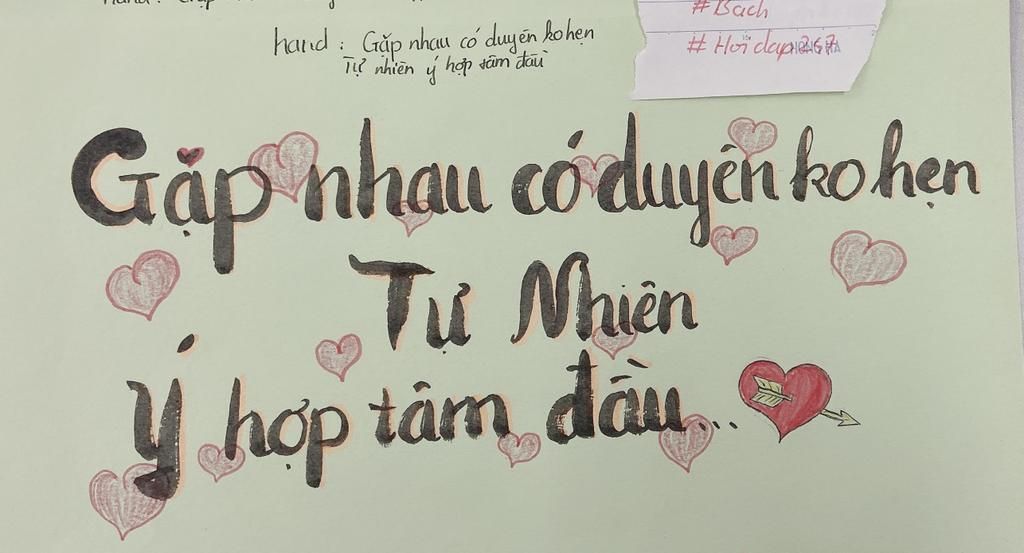 #Bach
# Hoidap247
HONG HA
hand : Gặp nhau có duyên ko hẹn
Tự nhiên ý hợp tâm đầu
Gặp nhau có duyên ko hẹn
Tự Nhiên
Ý hợp tâm đầu...